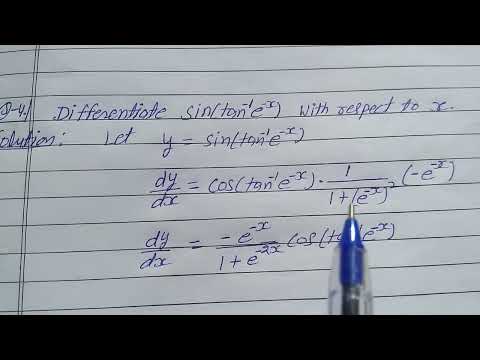 Q-4. Differentiate sin(tan⁻¹e⁻ˣ) with respect to x.
Solution: Let y = sin(tan⁻¹e⁻ˣ)
dy/dx = cos(tan⁻¹e⁻ˣ) · 1/(1+(e⁻ˣ)²) (-e⁻ˣ)
dy/dx = -e⁻ˣ/(1+e⁻²ˣ) cos(tan⁻¹e⁻ˣ)